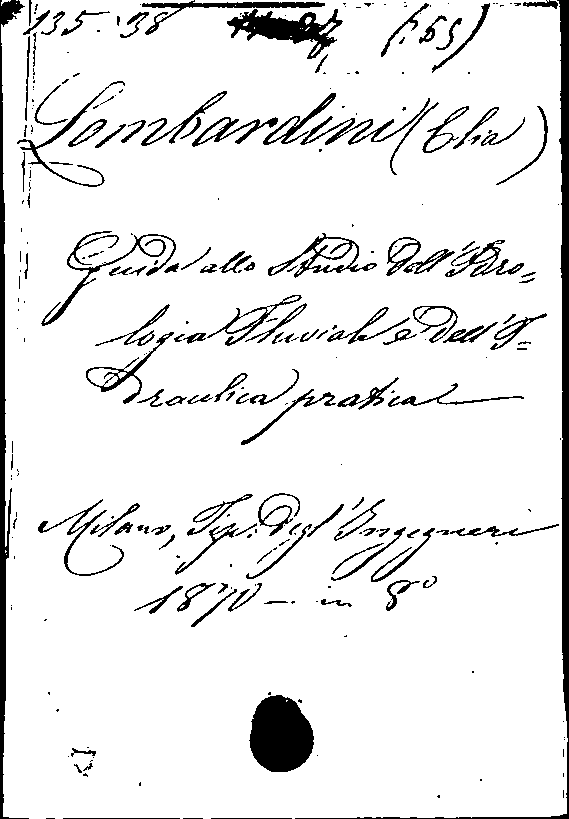 135. 38 (p. 65)
Lombardini (Elia)
Guida allo Studio dell'Idro=
logia Fluviale e dell'I=
draulica pratica
Milano, Tip. degl'Ingegneri
1870 — in 8°